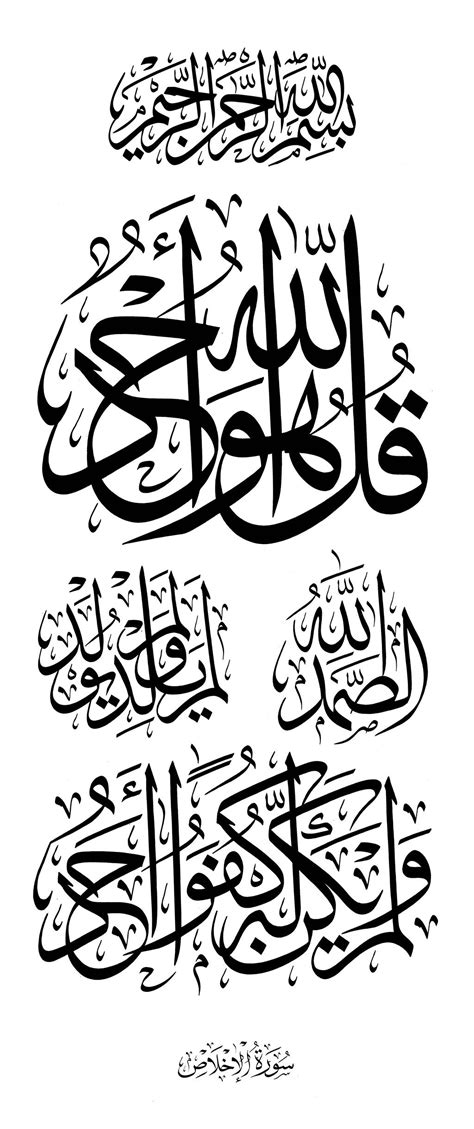 بِسْمِ اللهِ الرَّحْمٰنِ الرَّحِيْمِ
قُلْ هُوَ اللّٰهُ أَحَدٌ
اللّٰهُ الصَّمَدُ لَمْ يَلِدْ وَلَمْ يُولَدْ
وَلَمْ يَكُنْ لَهُ كُفُوًا أَحَدٌ
سُورَةُ الْإِخْلَاصِ